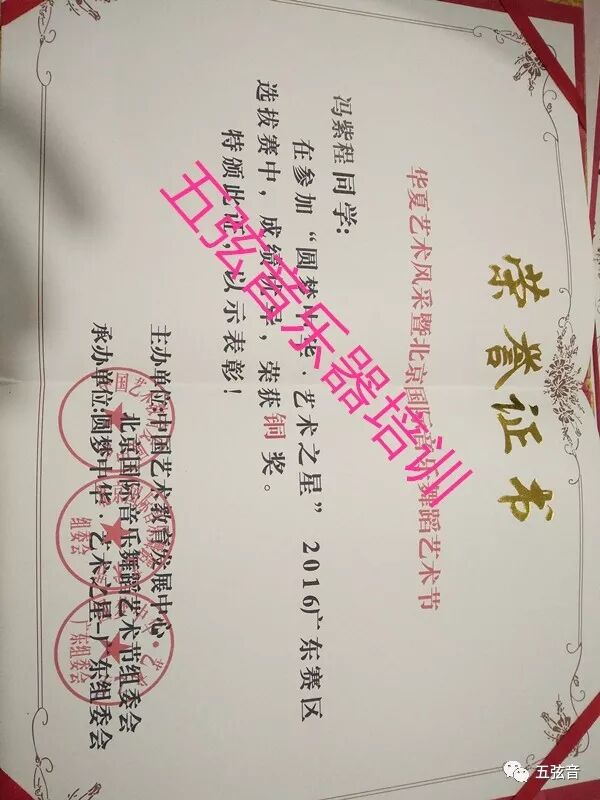 荣誉证书
华夏艺术风采暨北京国际音乐舞蹈艺术节
冯紫程同学：
在参加“圆梦中华·艺术之星”2016广东赛区
选拔赛中，成绩优异，荣获铜奖。
特颁此证，以示表彰！
主办单位:中国艺术教育发展中心
北京国际音乐舞蹈艺术节组委会
承办单位:圆梦中华·艺术之星-广东组委会
组委会
组委会
广东组委会
五弦音乐器培训
五弦音